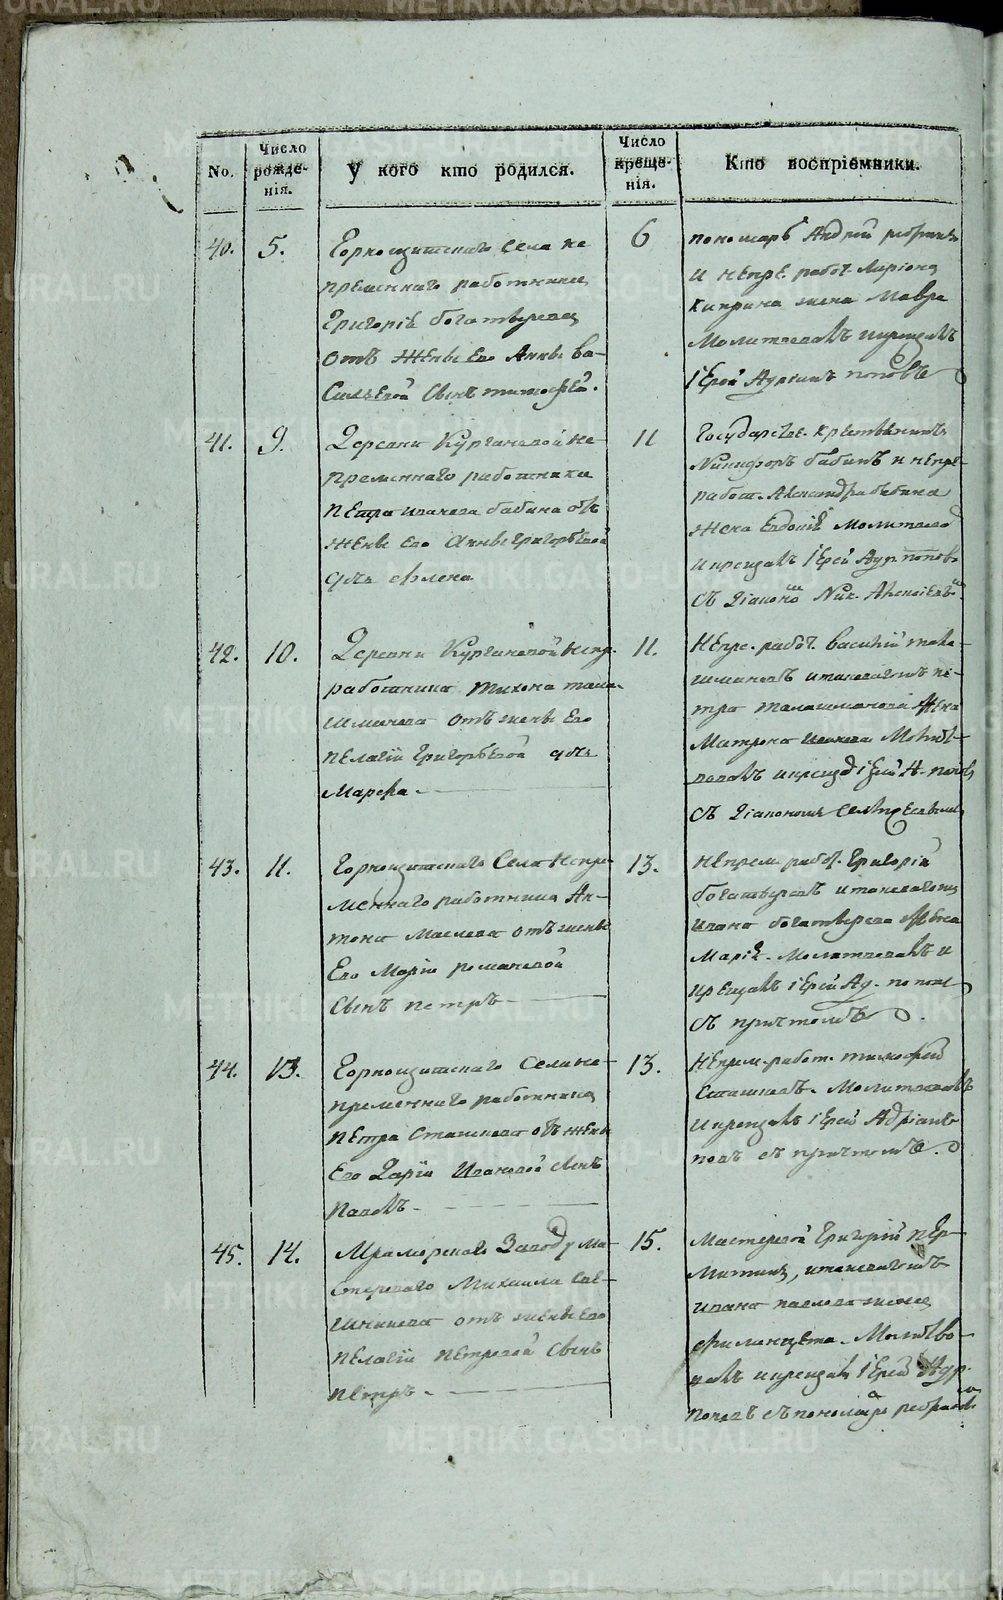 No.
Число рожде-нія.
У кого кто родился.
Число креще-нія.
Кто воспріемники.
40.
5.
Горнощитскаго села не
пременнаго работника
Григорія богатырева
отъ жены его Анны ва-
сильевой сынъ тимофей.
6
пономарь Андрей
и непре. работ. Ларіона
киприна жена Мавра
Молитвовалъ икрещалъ
іерей Адріанъ поповъ
41.
9.
Деревни Кургановой не-
пременнаго работника
петра ивачева бабина отъ
жены его Анны григорьевой
дчь елена
11
Государстве. крестьянинъ
Никифоръ бабинъ и непре-
работ. Александра бабина
жена Евдокія молитвовал
икрещалъ іерей Адр. поповъ
съ діакономъ Ник. Алексіевымъ
42.
10.
Деревни Кургановой непр.
работника тихона тала-
шманова отъ жены его
пелагіи григорьевой дчь
Марфа
11.
Непре. работ. василій тала-
шмановъ итаковагожъ пе-
тра талашманова жена
Матрона Молитв-
валъ икрещал іерей А. поповъ
съ діакономъ
43.
11.
Горнощитскаго Села непре-
меннаго работника Ан-
тона Маслева отъ жены
его Маріи романовой
сынъ петръ
13.
Непрем. работ. Григорій
богатыревъ итаковагожъ
ивана богатырева жена
Марія. Молитвовалъ и
крещалъ іерей Ад. попов
съ причтомъ.
44.
13.
Горнощитскаго Села не-
пременнаго работника
петра Сташкова отъ жены
его Дарьи Ивановой сынъ
павелъ
13.
Непрем. работ. тимофей
Сташковъ. Молитвовалъ
икрещалъ іерей Адріанъ
повъ съ причтомъ.
45.
14.
Мраморскаго Заводу ма-
стероваго Михаила Све-
шникова отъ жены его
пелагіи петровой сынъ
петръ
15.
Мастеровой Григорій пер-
митинъ, итаковагожъ
ивана павлова жена
филицата. Молитво-
валъ икрещалъ іерей Адр.
поповъ съ пономаремъ
METRIKI.GASO-URAL.RU